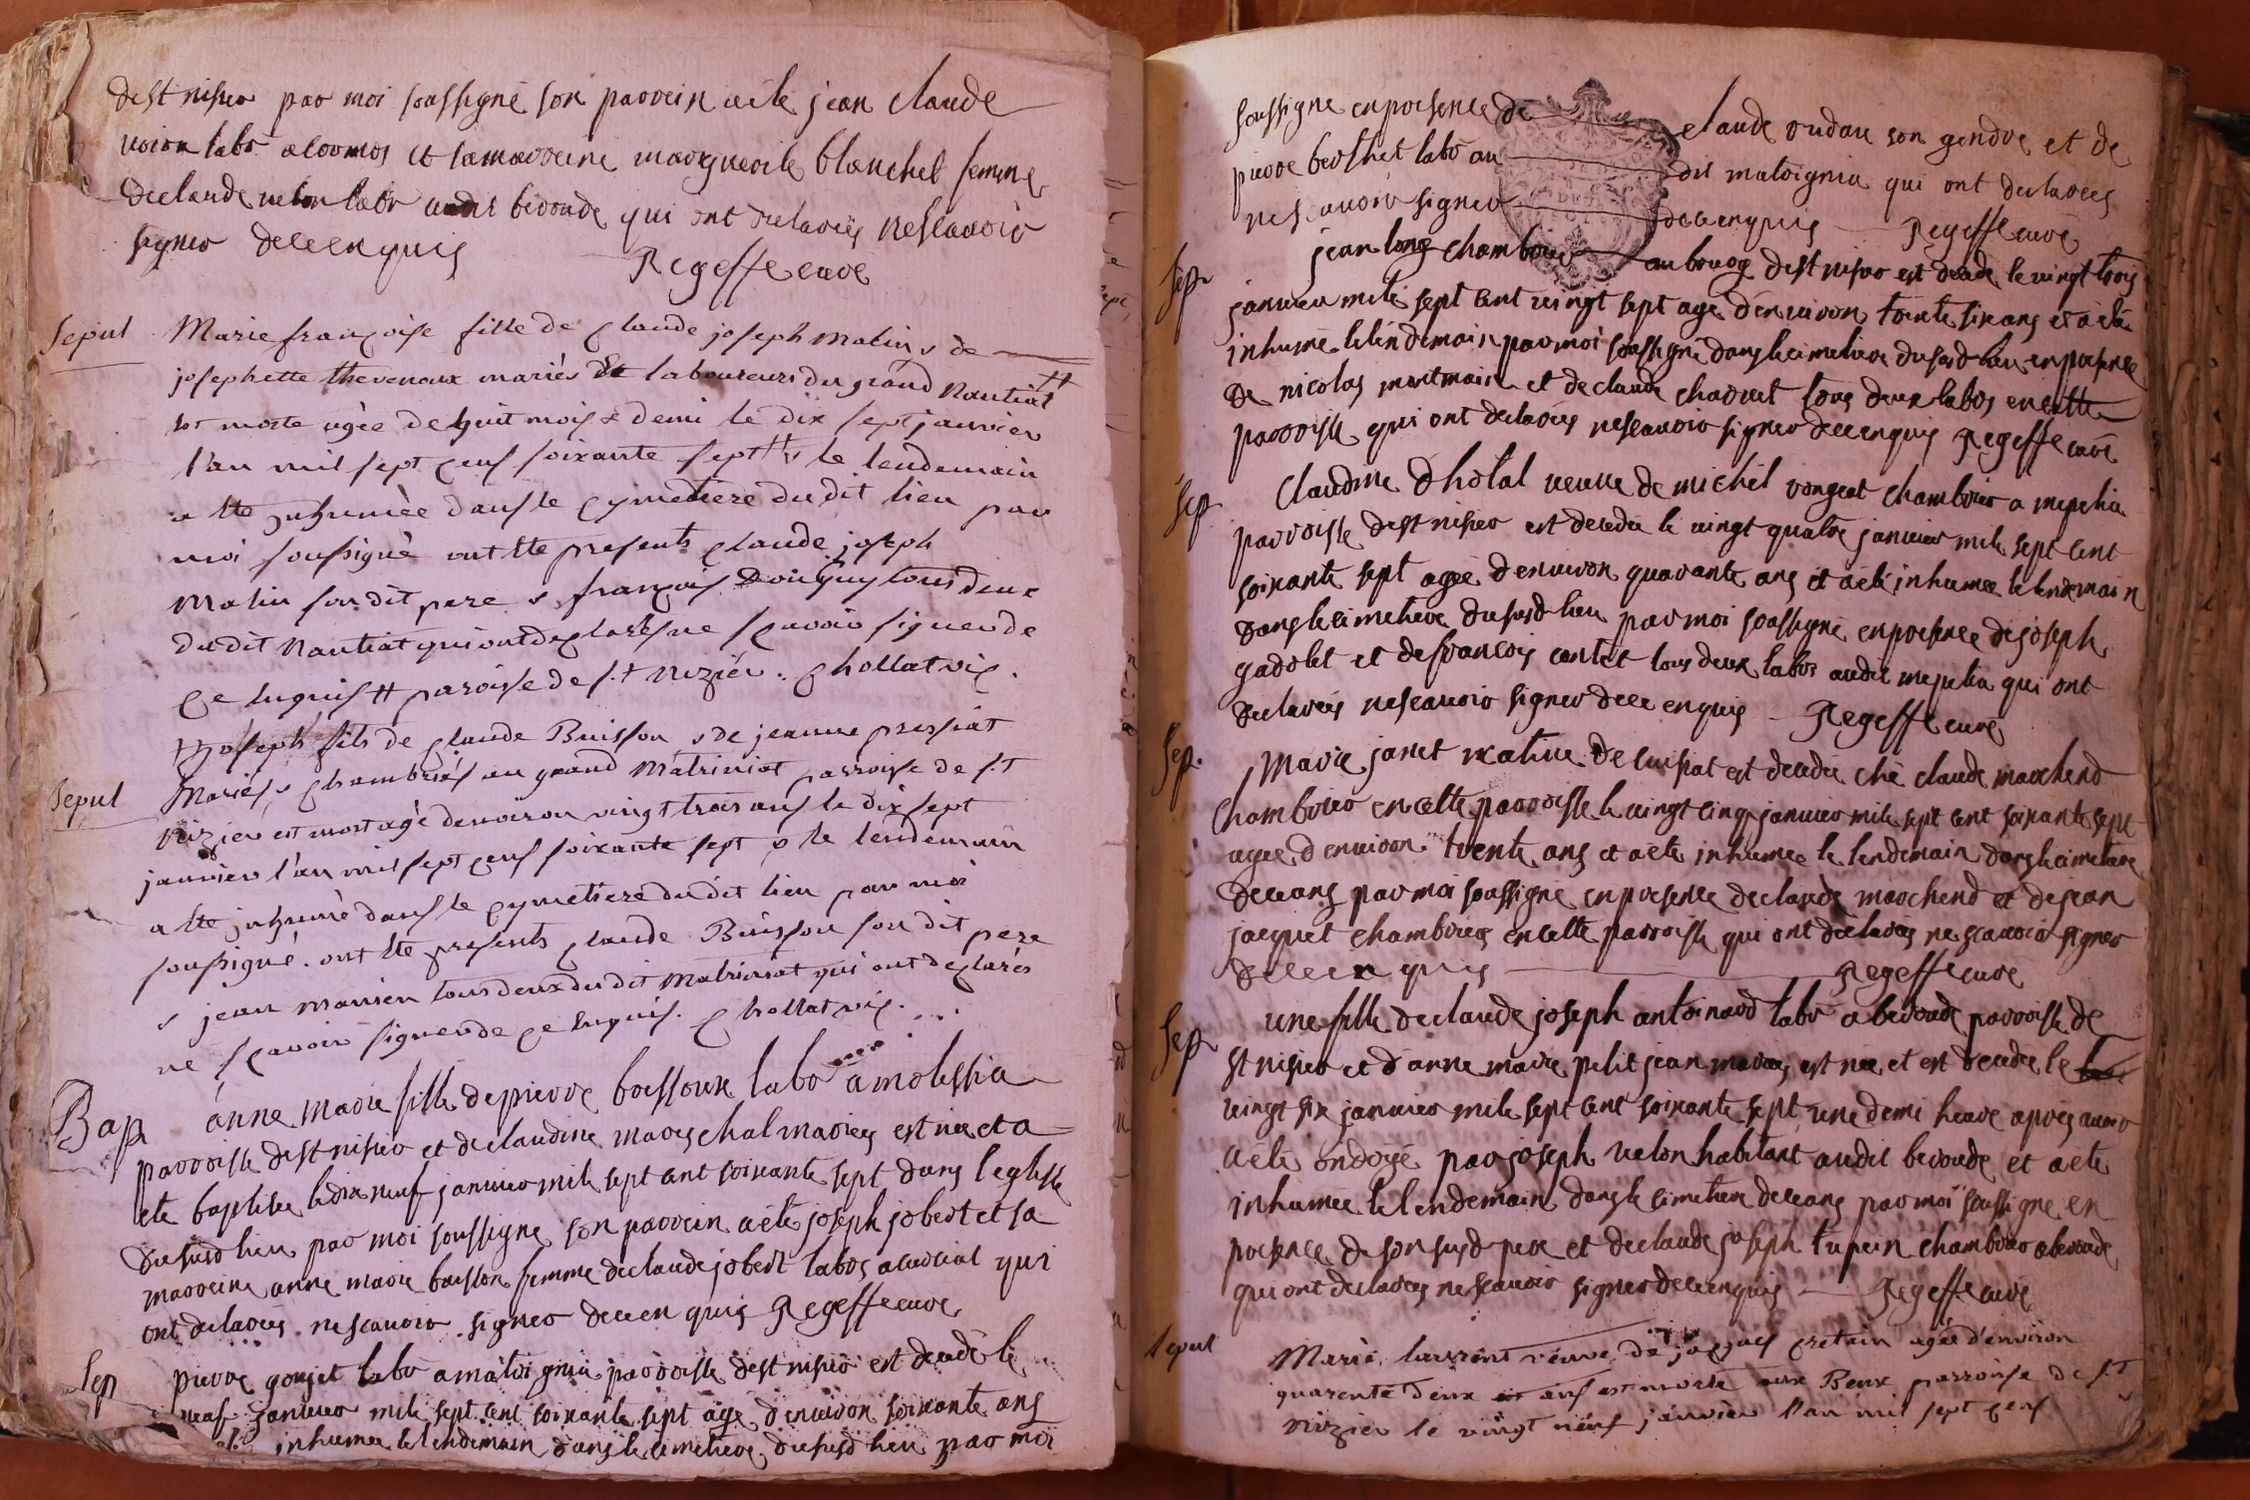 dest nisier par moi soussigné son parrein aété jean claude
voisin labr a cormos et sa marreine marguerite blanchet femme
de claude velon labr audit beroude qui ont declarés ne scavoir
signer de ce enquis Regeffe curé
Sepul Marie françoise fille de claude joseph Matin & de
josephette thevenoux mariés et laboureurs du grand Nantiat #
est morte agée de huit mois & demi le dix sept janvier
l'an mil sept cens soixante sept & le lendemain
a ete inhumée dans le cymetiere dudit lieu par
moi soussigné ont ete presents claude joseph
Matin son dit pere & françois tous deux
dudit Nantiat qui ont declarés ne scavoir signer de
ce enquis # paroisse de s.t Nizier. Chollat vic.
joseph fils de claude Buisson & de jeanne pressiat
Sepul Mariés & chambriés au grand Matriniat parroisse de s.t
Nizier est mort agé denviron vingt trois ans le dix sept
janvier l'an mil sept cens soixante sept & le lendemain
a ete inhumé dans le cymetiere dudit lieu par moi
soussigné. ont ete presents claude Buisson son dit pere
& jean manien tous deux du dit Matriniat qui ont declarés
ne scavoir signer de ce enquis. Chollat vic.
Bap anne marie fille de pierre boissoux labr a molissia
parroisse dest nisier et de claudine mareschal mariés est née et a
eté baptisée le dix neuf janvier mile sept cent soixante sept dans l'eglisse
du susd lieu par moi soussigné son parrein a été joseph jobert et sa
marreine anne marie buisson femme de claude jobert labos a cuviat qui
ont declarés ne scavoir signer de ce en quis Regeffe curé
Sep pierre goujet labr a matrignia parroisse dest nisier est decedé le
neuf janvier mile sept cent soixante sept agé d'environ soixante ans
inhumée le lendemain dans le cimetiere du susd lieu par moi
soussigné en presence de claude oudar son gendre et de
pierre berthet labr au dit matrignia qui ont declarés
ne scavoir signer de ce enquis Regeffe curé
Sep jean long chambrier au bourg dest nisier est decedé le vingt trois
janvier mile sept cent vingt sept agé d'environ trente six ans et a eté
inhumé le lendemain par moi soussigné dans le cimetiere du susd lieu en presence
de nicolas montmain et de claude charvet tous deux labos en cette
parroisse qui ont declarés ne scavoir signer de ce enquis Regeffe curé
Sep claudine dholal veuve de michel rongeat chambrier a mepelia
parroisse dest nisier est decedée le vingt quatre janvier mile sept cent
soixante sept agée d'environ quarante ans et a eté inhumée le lendemain
dans le cimetiere du susd lieu par moi soussigné en presence de joseph
gadolet et de francois contet tous deux labos audit mepelia qui ont
declarés ne scavoir signer de ce enquis Regeffe curé
Sep. Marie janet native de cuisiat est decedée ché claude marchend
chambrier en cette parroisse le vingt cinq janvier mile sept cent soixante sept
agée d'environ trente ans et a eté inhumée le lendemain dans le cimetiere
de ceans par moi soussigné en presence de claude marchend et de jean
jacquet chambriers en cette parroisse qui ont declarés ne scavoir signer
de ce en quis Regeffe curé
Sep une fille de claude joseph antoinard labr a beroude parroisse de
st nisier et d'anne marie petit jean mariés est née et est decedée le
vingt six janvier mile sept cent soixante sept une demi heure après avoir
a eté ondoyé par joseph velon habitant audit beroude et a eté
inhumée le lendemain dans le cimetiere de ceans par moi soussigné en
presence de son susd pere et de claude joseph tupin chambrier a beroude
qui ont declarés ne scavoir signer de ce enquis Regeffe curé
Sepul Marie laurent veuve de jacques cretain agée d'environ
quarente deux ans est morte aux Beux parroisse de s.t
Nizier le vingt neuf janvier l'an mil sept cens